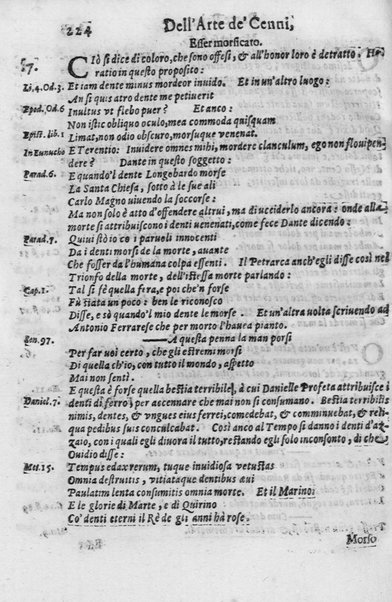 224 Dell'Arte de' Cenni,
Esser morsicato.
57. CIò si dice di coloro, che sono offesi, & all'honor loro è detratto. Ho-
ratio in questo proposito:
Li.4.Od.3. Et iam dente minus mordeor inuido. Et in un'altro luogo:
An si quis atro dente me petiuerit
Epod.Od.6 Inultus vt flebo puer? Et anco:
Non istic obliquo oculo, mea commoda quisquam
Epist. lib.1 Limat, non odio obscuro, morsuque venenat.
In Eunucho E Terentio: Inuidere omnes mihi, mordere clanculum, ego non flouipen-
dere? Dante in questo soggetto:
Parad.6. E quando'l dente Longobardo morse
La Santa Chiesa, sotto à le sue ali
Carlo Magno uiuendo la soccorse:
Ma non solo è atto d'offendere altrui, ma di ucciderlo ancora: onde alla
morte si attribuiscono i denti venenati, come fece Dante dicendo:
Parad.7. Quiui stò io co i paruoli innocenti
Da i denti morsi de la morte, auante
Che fosser da l'humana colpa essenti. Il Petrarca anch'egli disse così nel
Trionfo della morte, dell'istessa morte parlando:
Cap.1. Tal si fè quella fera, e poi che'n forse
Fù stata un poco: ben le riconosco
Disse, e sò quando'l mio dente le morse. Et un'altra uolta scriuendo ad
Antonio Ferrarese che per morto l'hauea pianto.
Son.97. —A questa penna la man porsi
Per far uoi certo, che gli estremi morsi
Di quella ch'io, con tutto il mondo, aspetto
Mai non sentì.
E questa è forse quella bestia terribile, à cui Danielle Profeta attribuisce i
Daniel.7. denti di ferro; per accennare che mai non si consumano. Bestia terribilis
nimis, dentes, & vngues eius ferrei, comedebat, & comminuebat, & reli-
qua pedibus suis conculcabat. Così anco al Tempo si danno i denti d'ac-
zaio, con i quali egli diuora il tutto, restando egli solo inconsonto, di che
Ouidio disse:
Met.15. Tempus edax rerum, tuque inuidiosa vetustas
Omnia destruitis, vitiataque dentibus æui
Paulatim lenta consumitis omnia morte. Et il Marino:
E le glorie di Marte, e di Quirino
Co' denti eterni il Rè de gli anni hà rose.
Morso